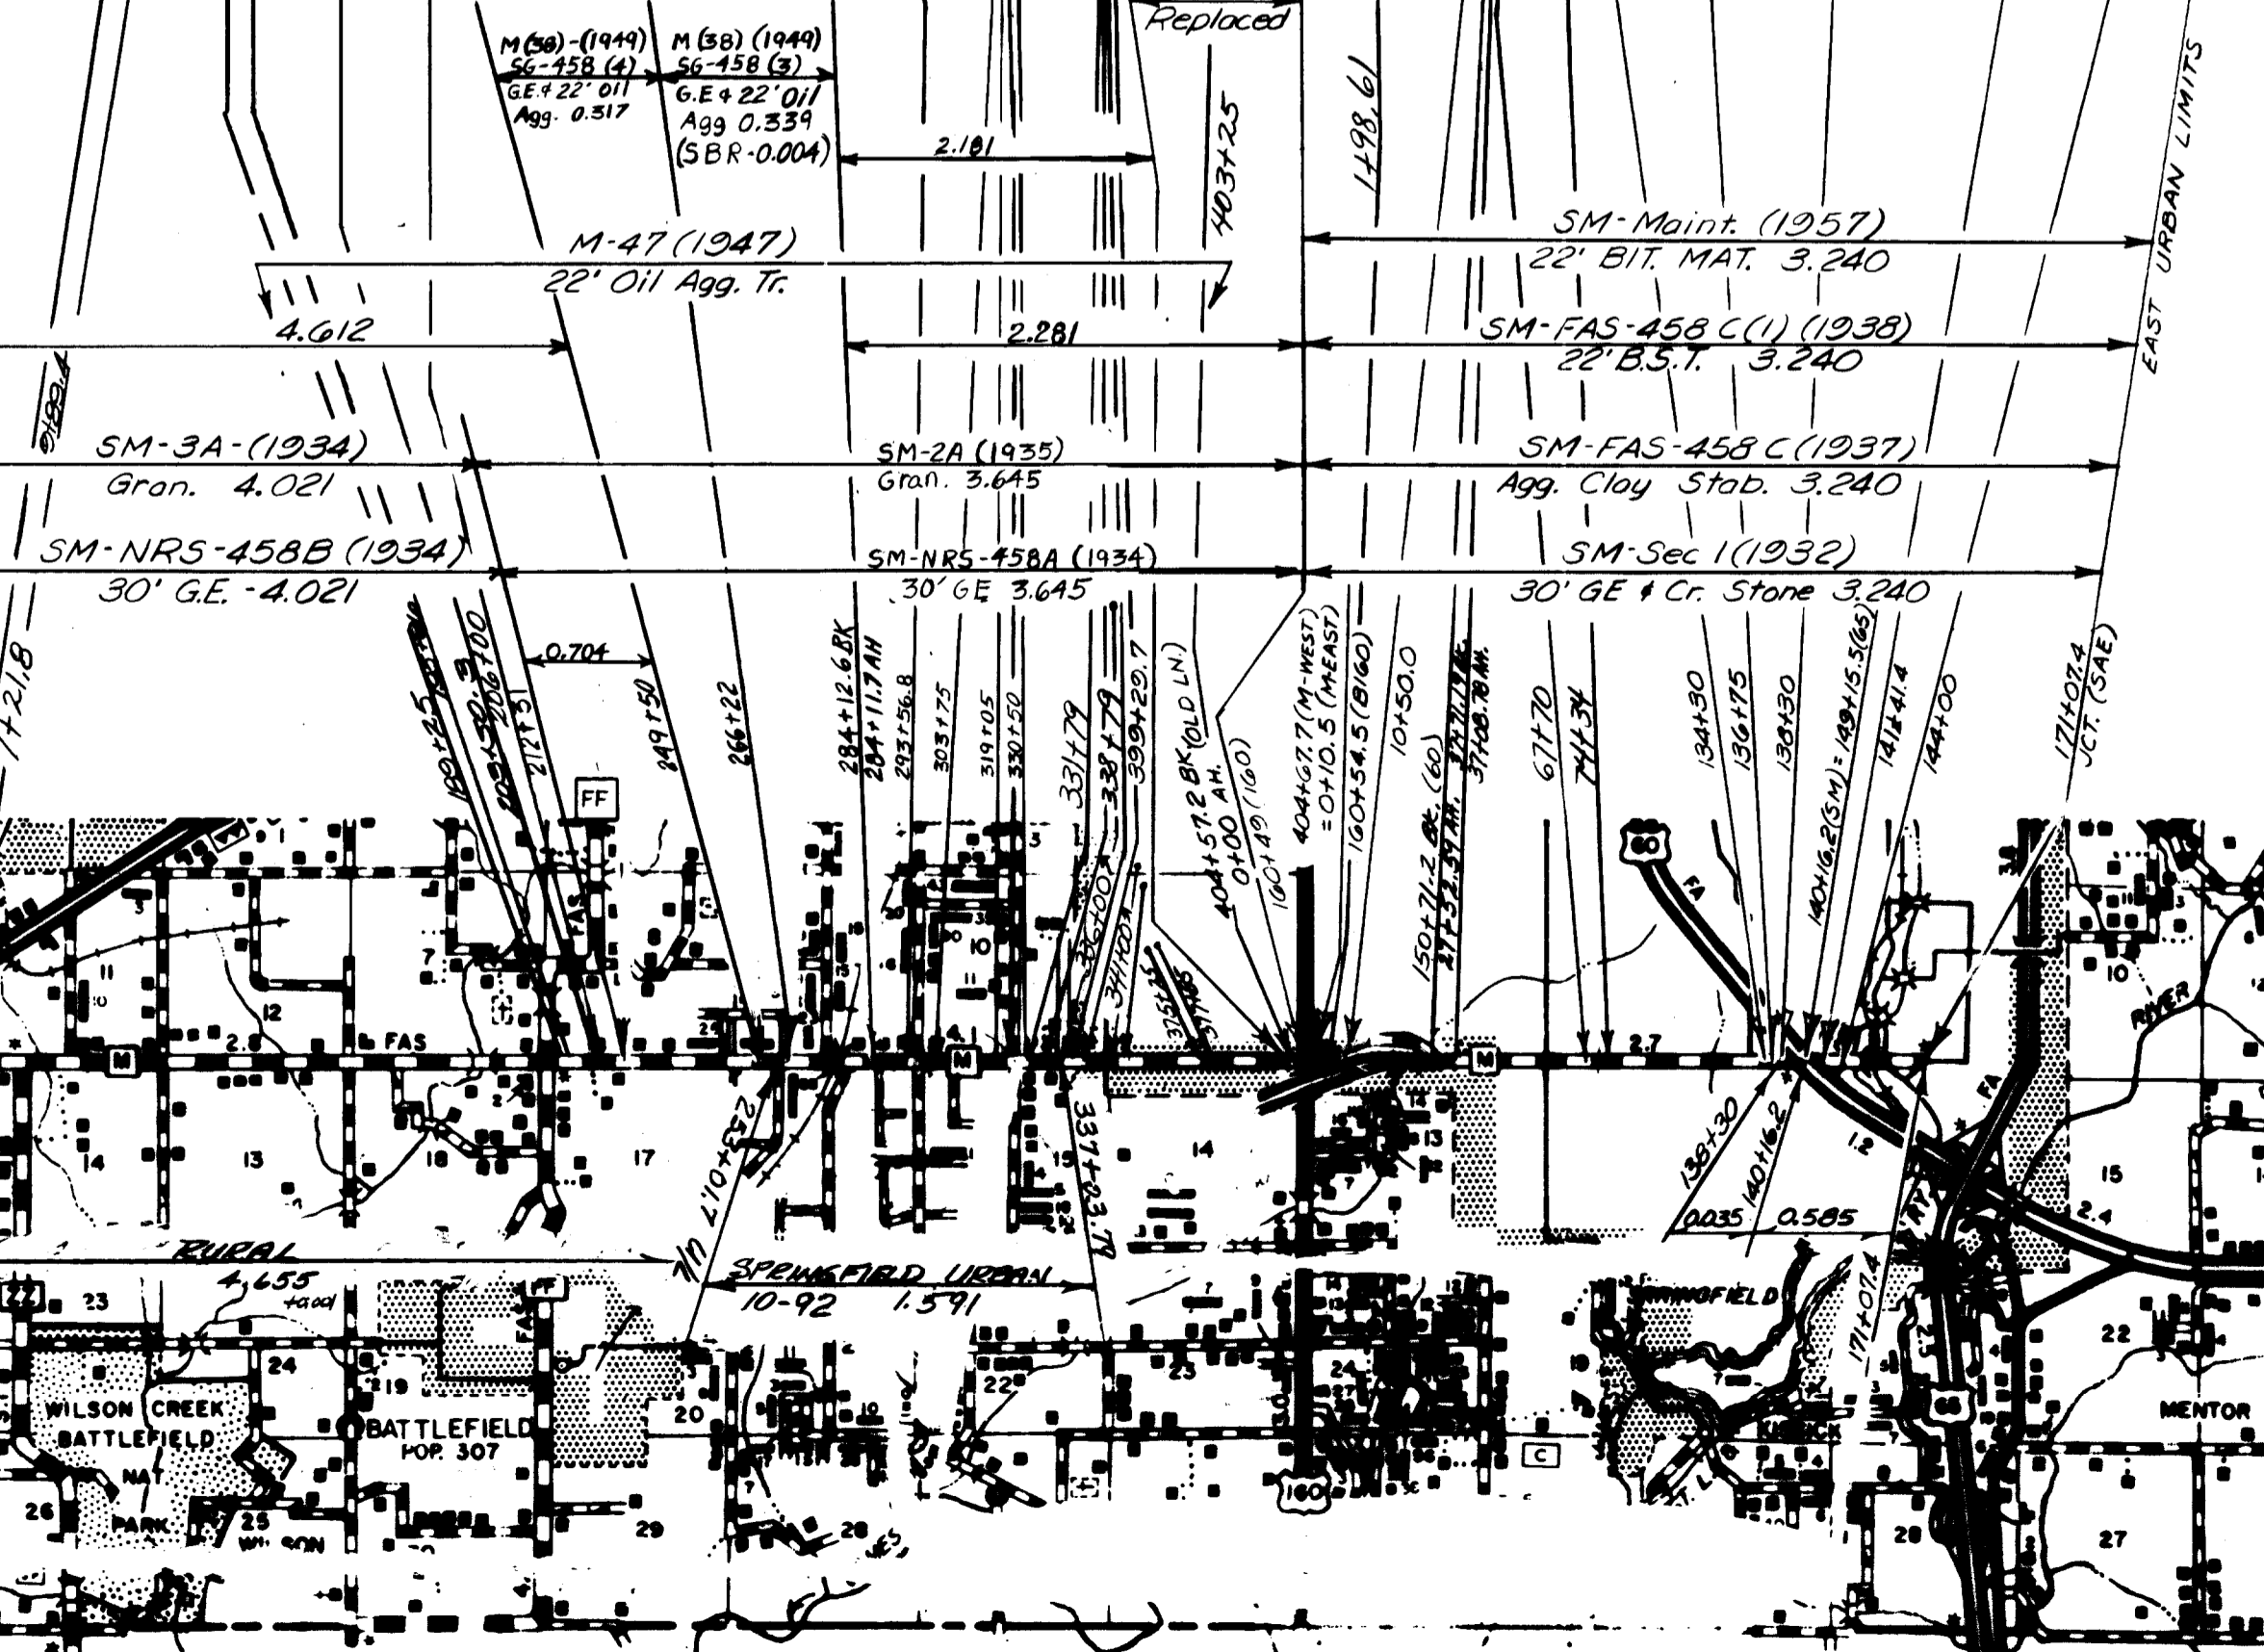 Replaced
M(38)-(1949)
SG-458 (4)
G.E.& 22' Oil
Agg. 0.317
M(38) (1949)
SG-458 (3)
G.E & 22' Oil
Agg 0.339
(SBR-0.004)
2.181
403+25
1+98.61
EAST URBAN LIMITS
M-47 (1947)
22' Oil Agg. Tr.
SM-Maint. (1957)
22' BIT. MAT. 3.240
4.612
2.281
SM-FAS-458 C(1) (1938)
22' B.S.T. 3.240
SM-3A-(1934)
Gran. 4.021
SM-2A (1935)
Gran. 3.645
SM-FAS-458 C (1937)
Agg. Clay Stab. 3.240
SM-NRS-458B (1934)
30' G.E. -4.021
SM-NRS-458A (1934)
30' GE 3.645
SM-Sec 1 (1932)
30' GE & Cr. Stone 3.240
1+21.8
189+25
206+00
212+31
0.704
249+50
266+22
284+12.6 BK
284+11.7 AH
293+56.8
303+75
319+05
330+50
331+79
336+00
338+79
341+00
399+29.7
404+57.2 BK (OLD LN.)
0+00 AH.
160+49 (160)
404+67.7 (M-WEST)
=0+10.5 (M-EAST)
160+54.5 (B160)
10+50.0
150+71.2 BK. (60)
27+52.59 AH.
37+08.78 AH.
67+70
74+34
134+30
136+75
138+30
140+16.2 (SM) = 149+15.5 (65)
141+41.4
144+00
171+07.4
JCT. (SAE)
FF
FAS
60
FA
3
9
1
7
11
12
10
10
10
RIVER
M
2.8
FAS
M
M
2.7
14
13
18
17
15
14
13
15
253+01.7
337+23.79
138+30
140+16.2
0.035
0.585
171+07.4
FA
1.2
2.4
RURAL
4.655
SPRINGFIELD URBAN
10-92 1.591
ZZ
23
FF
FAS
SPRINGFIELD
24
19
20
22
23
24
22
WILSON CREEK
BATTLEFIELD
NAT
PARK
BATTLEFIELD
POP. 307
C
160
65
KISSICK
MENTOR
26
25
WILSON
29
28
28
27